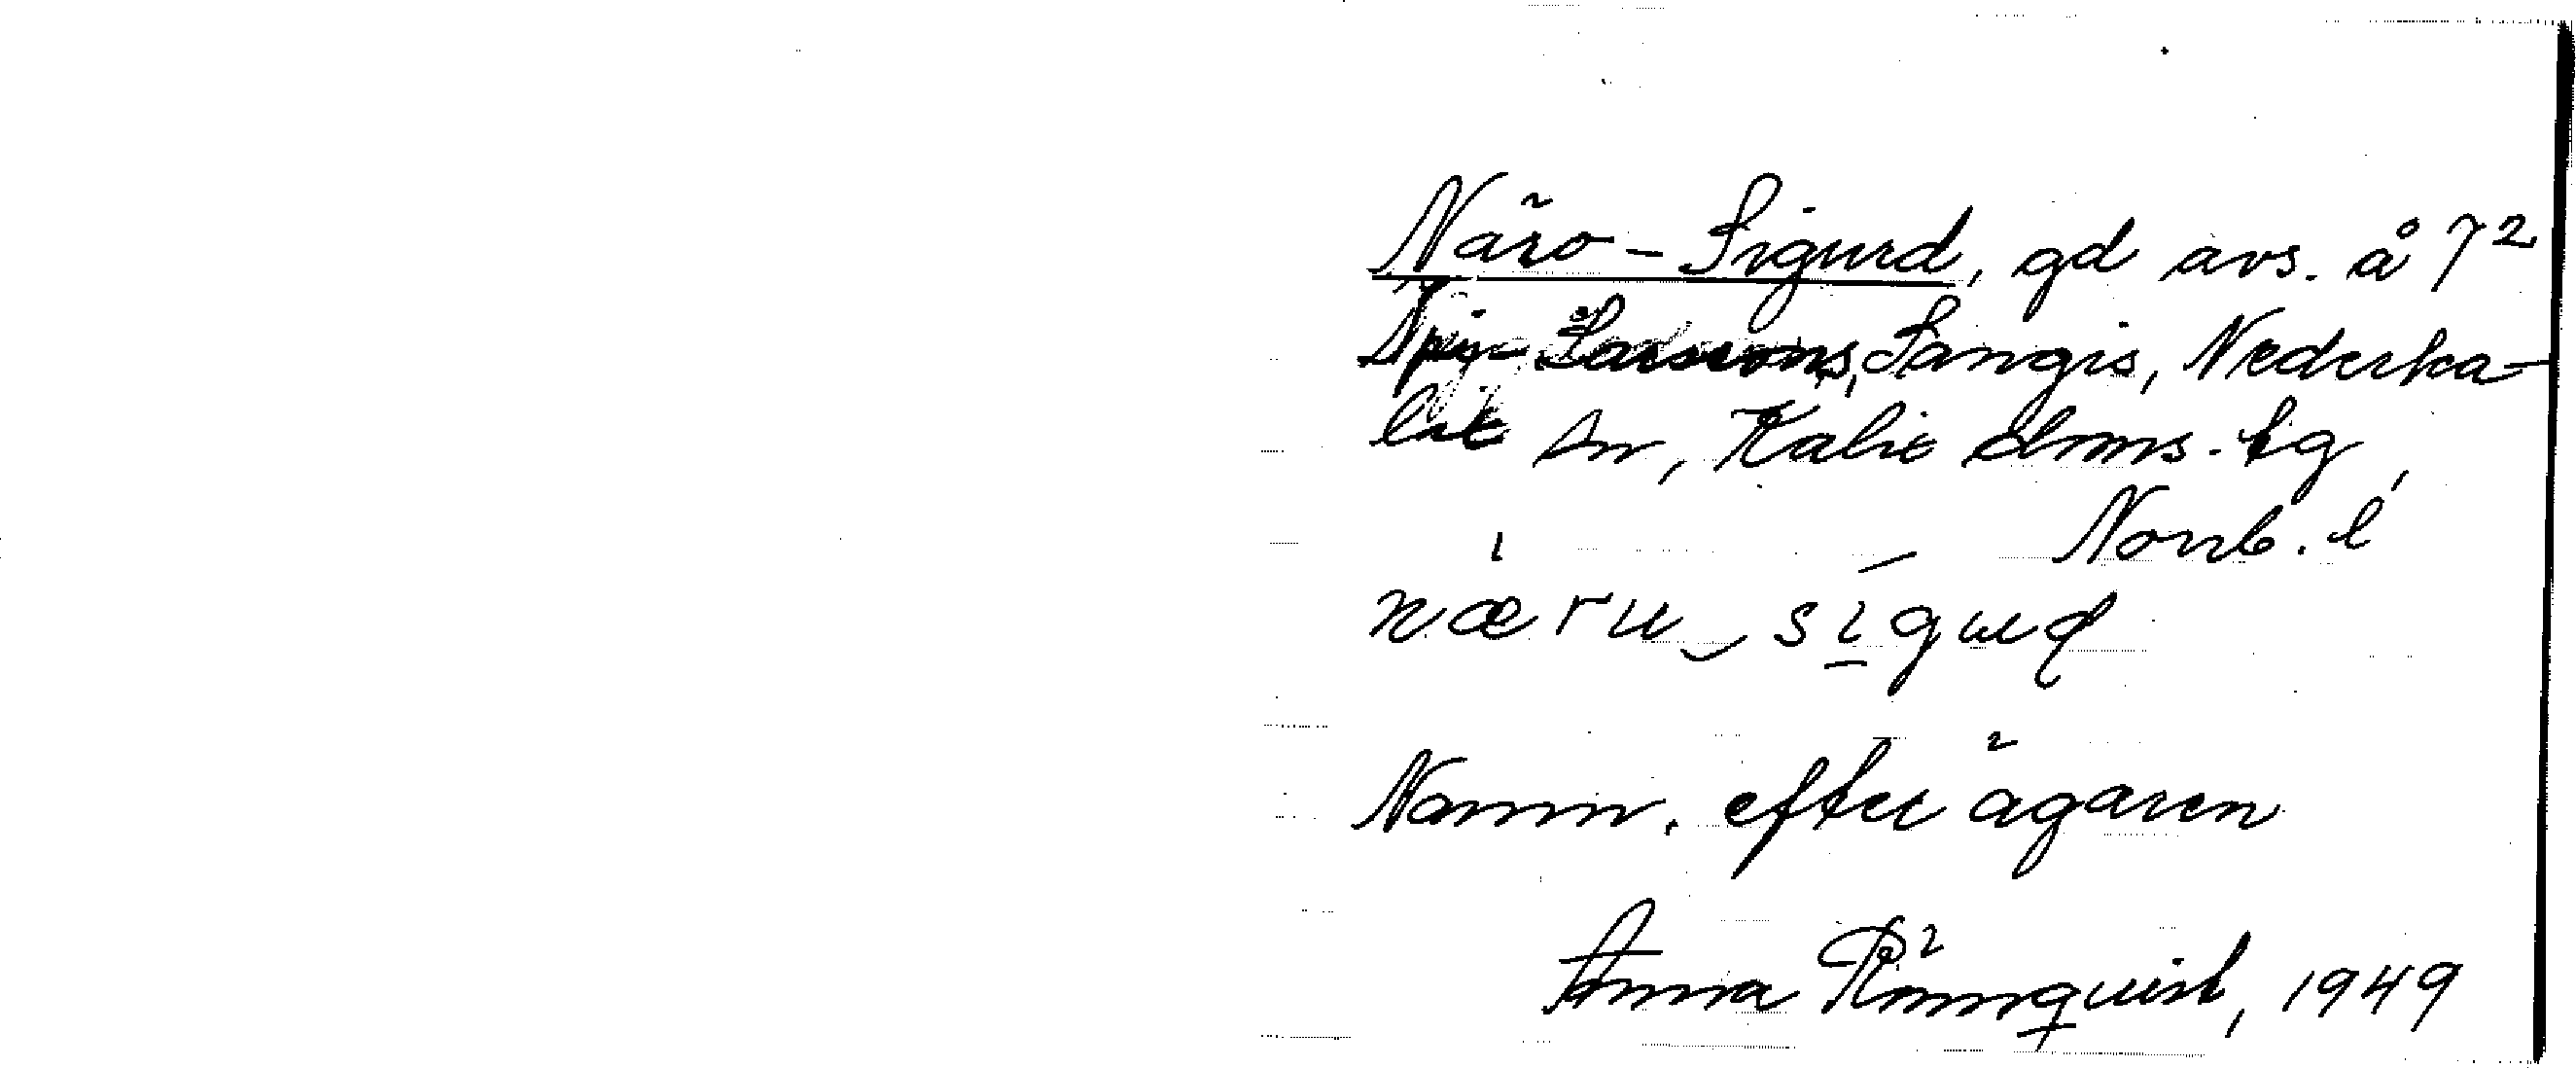 Näro-Sigurd, gd avs. å 7²
Larssons, Sangis, Nederka-
lix sn, Kalix doms.-tg,
Norrb. l
næru‿sigud
Namn. efter ägaren
Anna Rönnquist, 1949